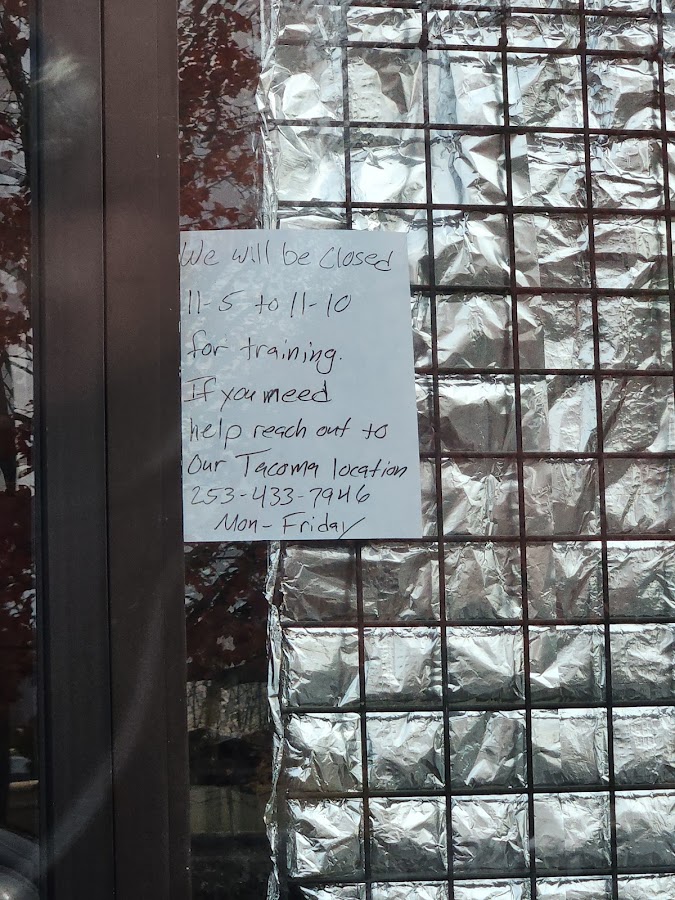 We will be closed
11-5 to 11-10
for training.
If you need
help reach out to
Our Tacoma location
253-433-7946
Mon-Friday